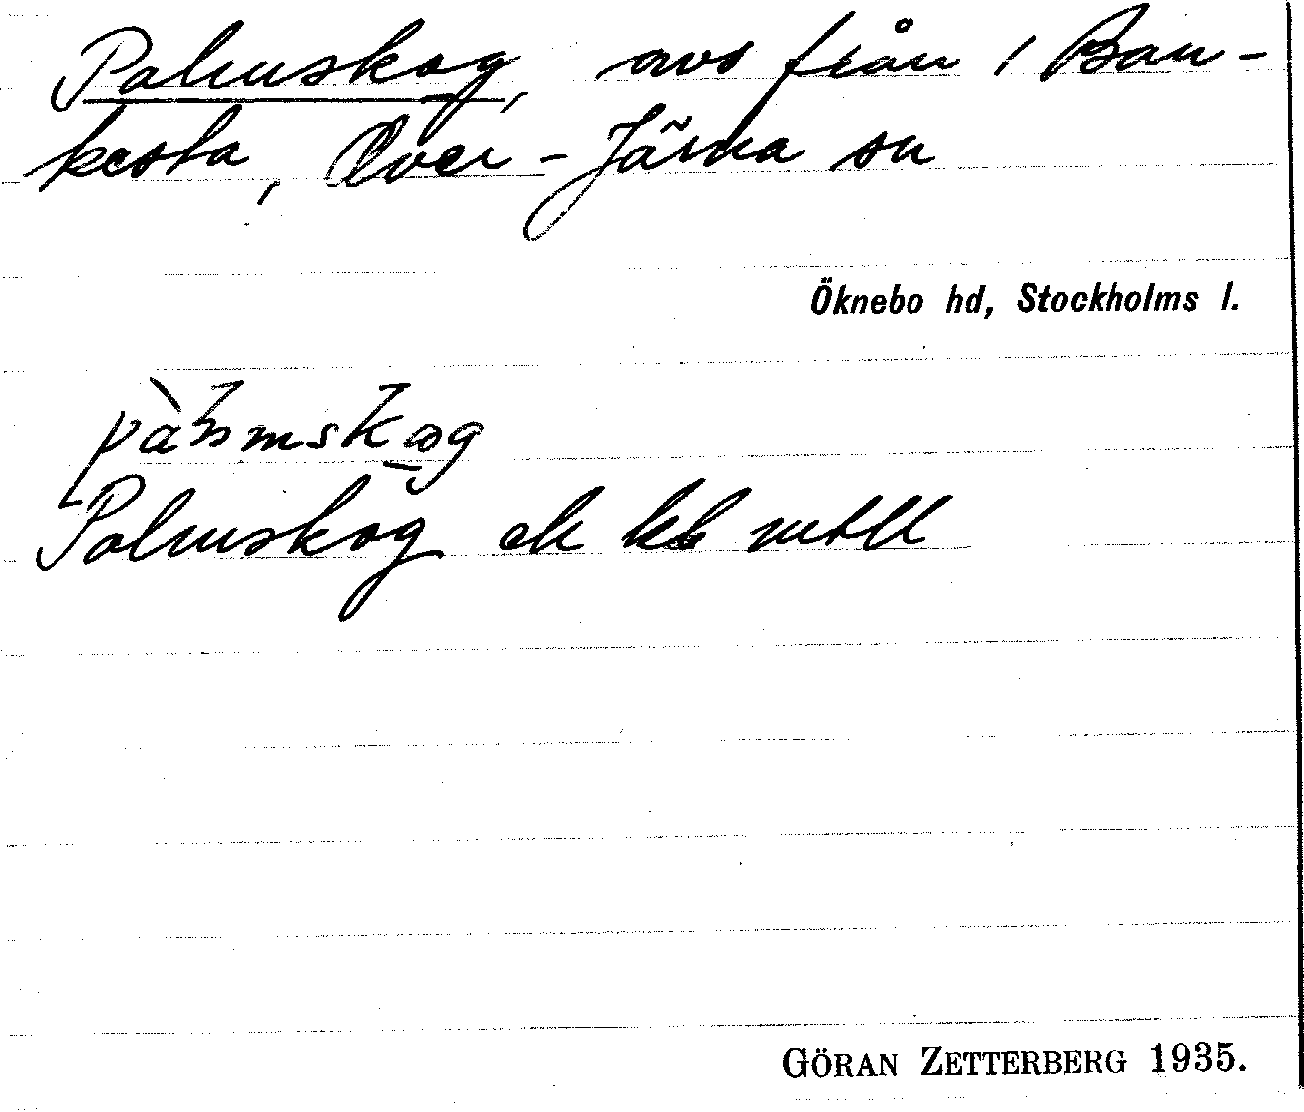 Palmskog, avs från 1 Ban-
kesta, Över-Järna sn
Öknebo hd, Stockholms l.
Palmskog ek kb
GÖRAN ZETTERBERG 1935.